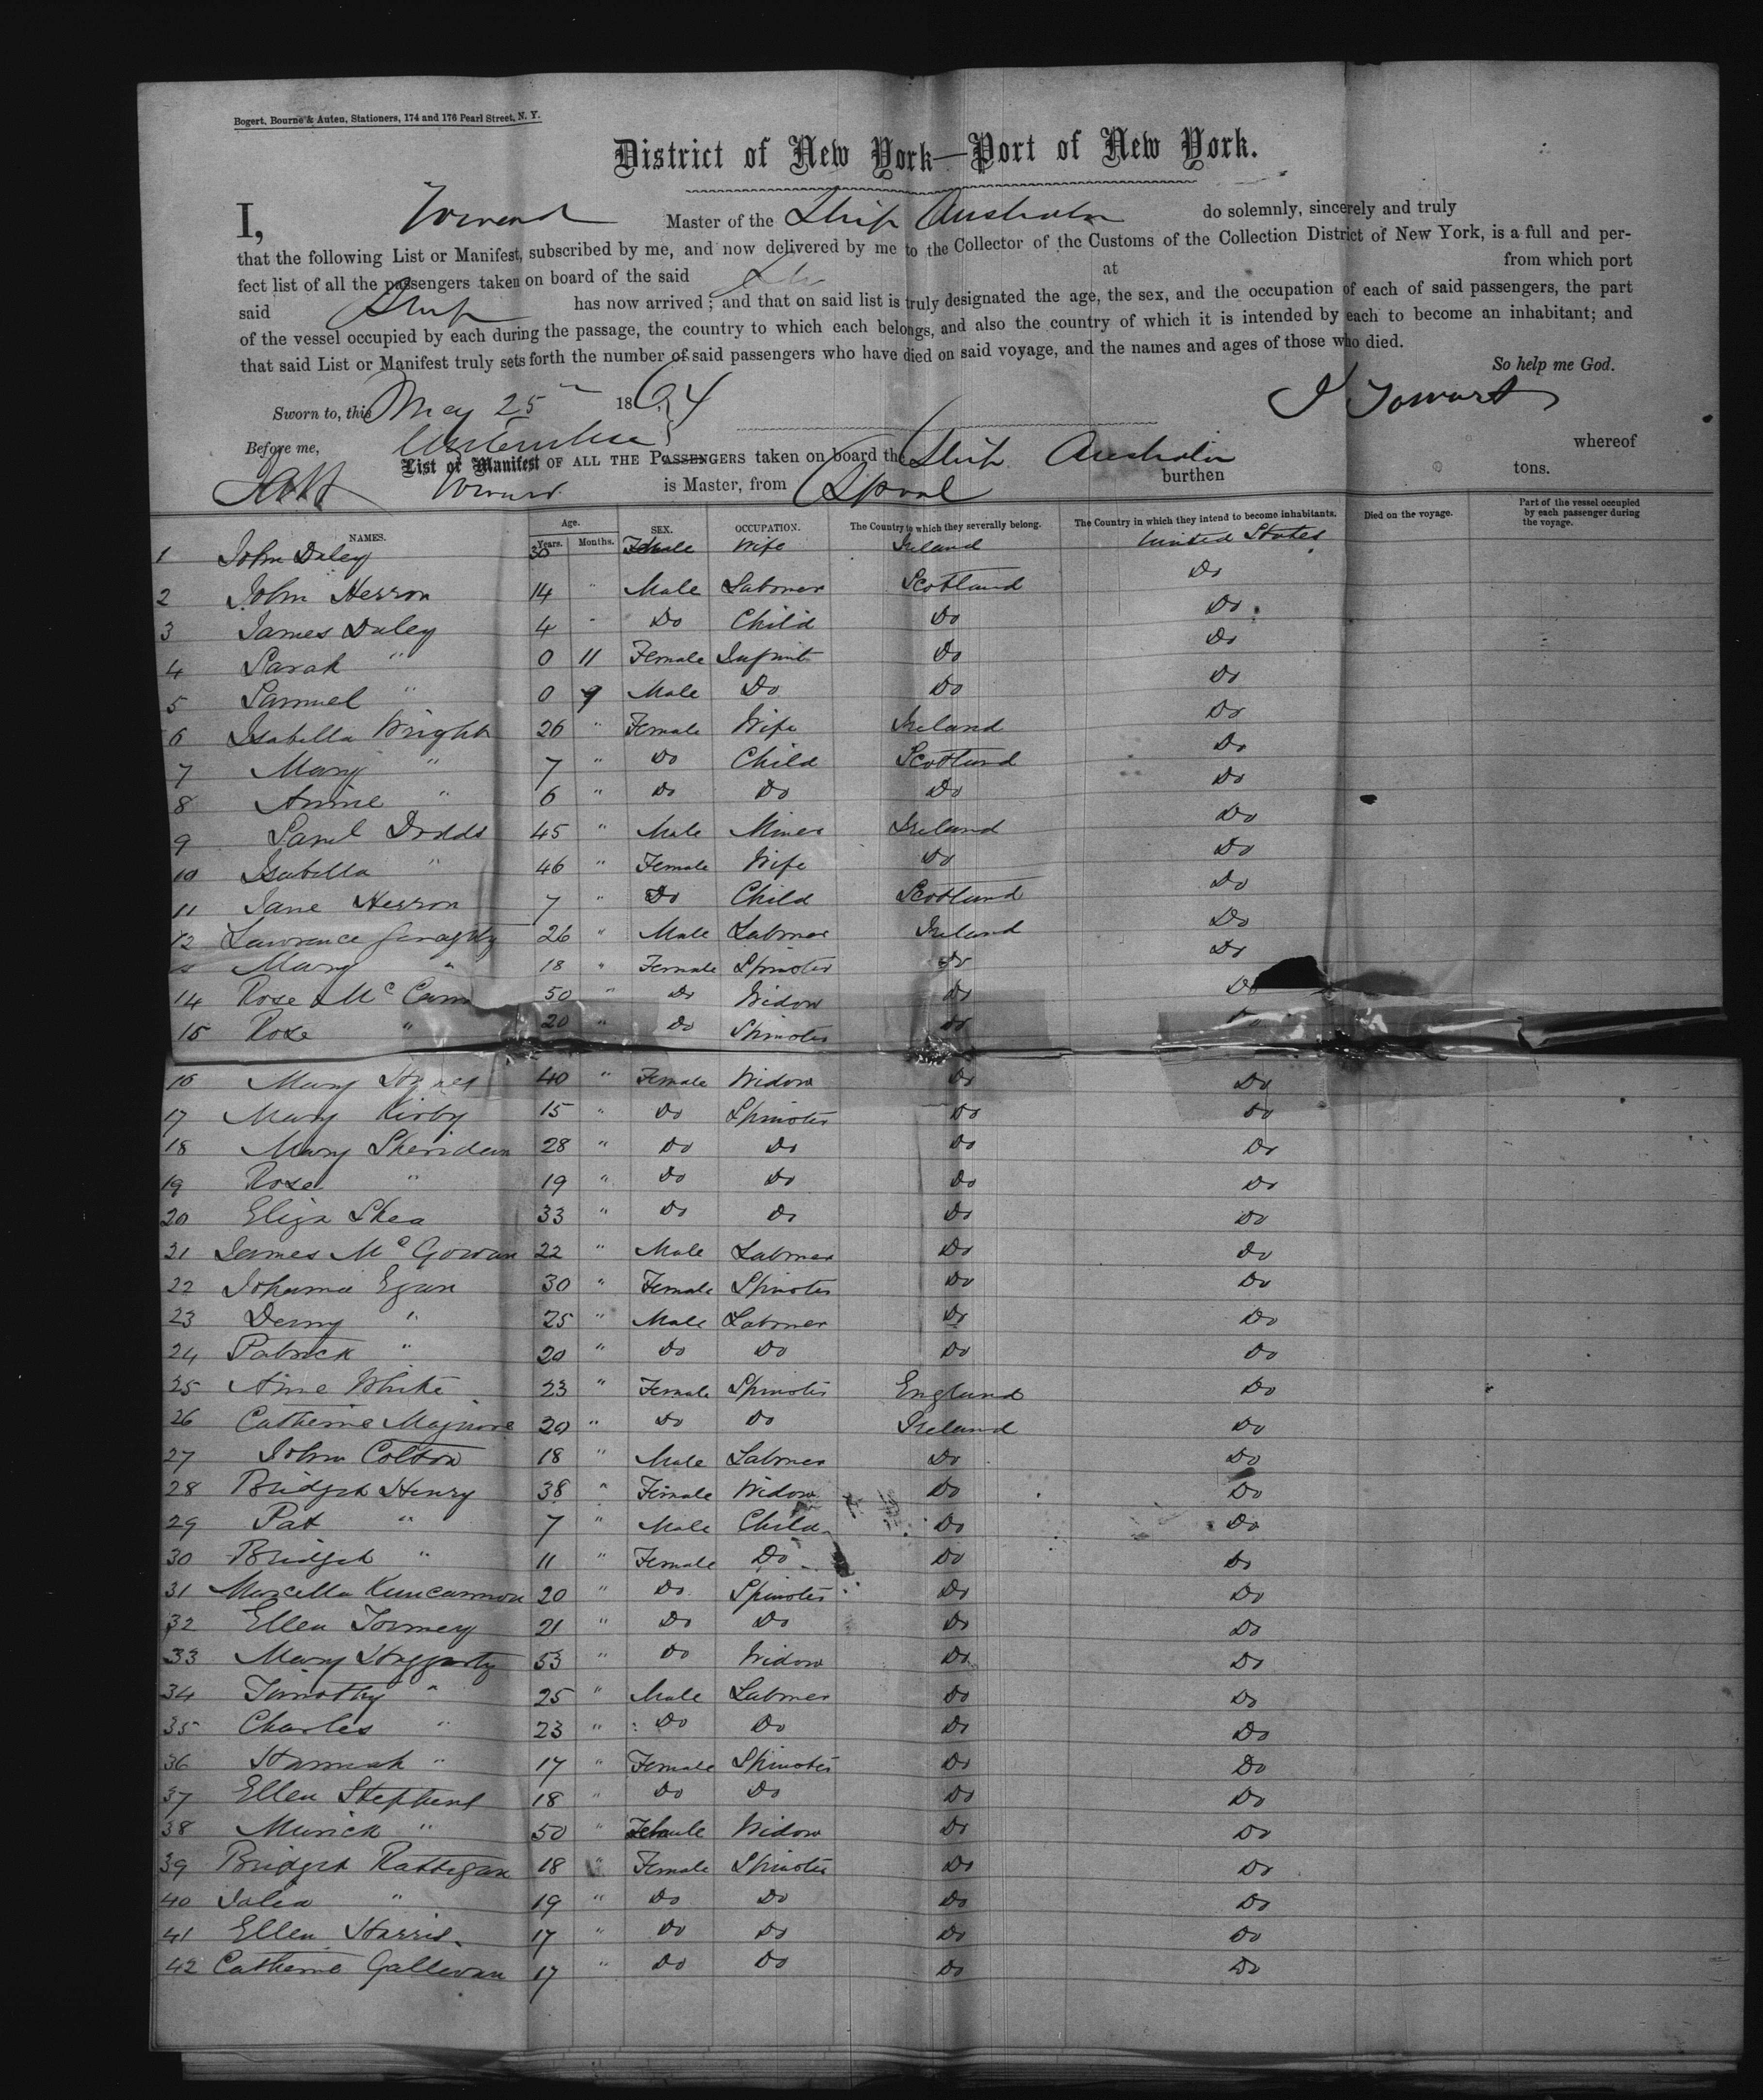 Bogert, Bourne & Auten, Stationers, 174 and 176 Pearl Street, N. Y.
District of New York—Port of New York.
I, Master of the Ship do solemnly, sincerely and truly
that the following List or Manifest, subscribed by me, and now delivered by me to the Collector of the Customs of the Collection District of New York, is a full and per-
fect list of all the passengers taken on board of the said at from which port
said Ship has now arrived; and that on said list is truly designated the age, the sex, and the occupation of each of said passengers, the part
of the vessel occupied by each during the passage, the country to which each belongs, and also the country of which it is intended by each to become an inhabitant; and
that said List or Manifest truly sets forth the number of said passengers who have died on said voyage, and the names and ages of those who died.
So help me God.
Sworn to, this May 25 1864
Before me,
List or Manifest OF ALL THE PASSENGERS taken on board the Ship whereof
is Master, from Lpool burthen tons.
NAMES. Age. Years. Months. SEX. OCCUPATION. The Country to which they severally belong. The Country in which they intend to become inhabitants. Died on the voyage. Part of the vessel occupied by each passenger during the voyage.
1 John Daley 30 Female Wife Ireland United States
2 John Herron 14 " Male Laborer Scotland Do
3 James Daley 4 " Do Child Do Do
4 Sarah " 0 11 Female Infant Do Do
5 Samuel " 0 9 Male Do Do Do
6 Isabella Wright 26 " Female Wife Ireland Do
7 Mary " 7 " Do Child Scotland Do
8 Annie " 6 " Do Do Do Do
9 Saml Dodds 45 " Male Miner Ireland Do
10 Isabella " 46 " Female Wife Do Do
11 Jane Herron 7 " Do Child Scotland Do
12 Lawrence Geraghty 26 " Male Laborer Ireland Do
Mary " 18 " Female Spinster Do Do
14 Rose Mc Cann 50 " Do Widow Do Do
15 Rose " 20 " Do Spinster Do Do
16 Mary Hynes 40 " Female Widow Do Do
17 Mary Kirby 15 " Do Spinster Do Do
18 Mary Sheridan 28 " Do Do Do Do
19 Rose " 19 " Do Do Do Do
20 Eliza Shea 33 " Do Do Do Do
21 James Mc Gowan 22 " Male Laborer Do Do
22 Johanna Egan 30 " Female Spinster Do Do
23 Denny " 25 " Male Laborer Do Do
24 Patrick " 20 " Do Do Do Do
25 Anne White 23 " Female Spinster England Do
26 Catherine 20 " Do Do Ireland Do
27 John Colton 18 " Male Laborer Do Do
28 Bridget Henry 38 " Female Widow Do Do
29 Pat " 7 " Male Child Do Do
30 Bridget " 11 " Female Do Do Do
31 Marcella Kuncannon 20 " Do Spinster Do Do
32 Ellen Tormey 21 " Do Do Do Do
33 Mary Haggarty 53 " Do Widow Do Do
34 Timothy " 25 " Male Laborer Do Do
35 Charles " 23 " Do Do Do Do
36 Hannah " 17 " Female Spinster Do Do
37 Ellen Stephens 18 " Do Do Do Do
38 " 50 " Female Widow Do Do
39 Bridget Rattigan 18 " Female Spinster Do Do
40 Julia " 19 " Do Do Do Do
41 Ellen Harris 17 " Do Do Do Do
42 Catherine Gallivan 17 " Do Do Do Do